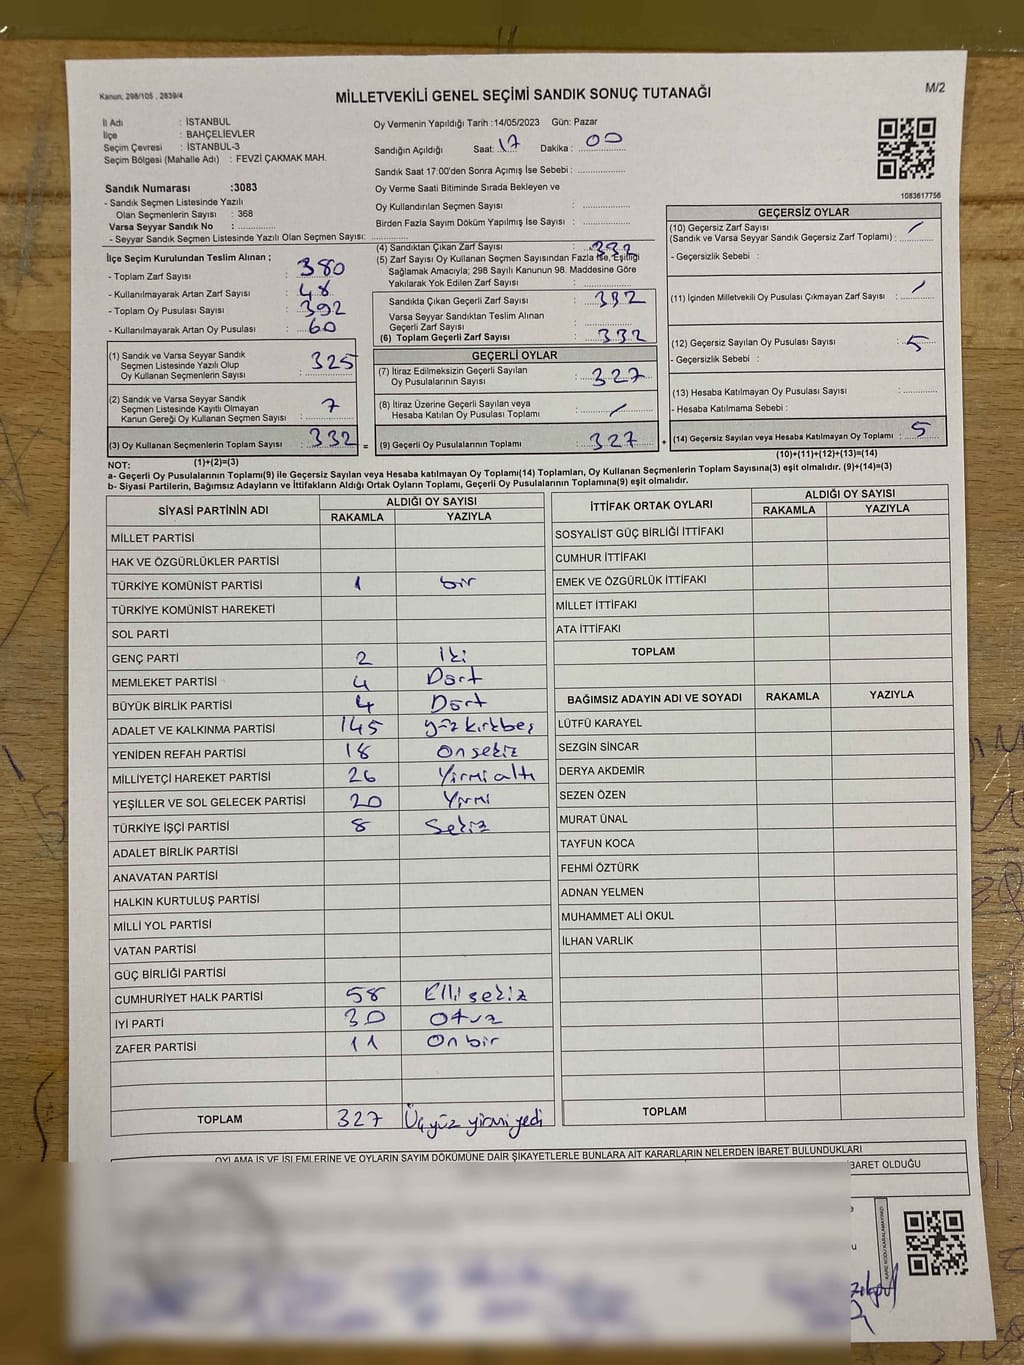 Kanun; 298/105 , 2839/4
MİLLETVEKİLİ GENEL SEÇİMİ SANDIK SONUÇ TUTANAĞI
M/2
İl Adı : İSTANBUL
İlçe : BAHÇELİEVLER
Seçim Çevresi : İSTANBUL-3
Seçim Bölgesi (Mahalle Adı) : FEVZİ ÇAKMAK MAH.
Sandık Numarası :3083
- Sandık Seçmen Listesinde Yazılı
Olan Seçmenlerin Sayısı : 368
Varsa Seyyar Sandık No :
- Seyyar Sandık Seçmen Listesinde Yazılı Olan Seçmen Sayısı:
Oy Vermenin Yapıldığı Tarih :14/05/2023 Gün: Pazar
Sandığın Açıldığı Saat: 17 Dakika : 00
Sandık Saat 17:00'den Sonra Açımış İse Sebebi :
Oy Verme Saati Bitiminde Sırada Bekleyen ve
Oy Kullandırılan Seçmen Sayısı :
Birden Fazla Sayım Döküm Yapılmış İse Sayısı :
1083617756
İlçe Seçim Kurulundan Teslim Alınan ;
- Toplam Zarf Sayısı : 380
- Kullanılmayarak Artan Zarf Sayısı : 48
- Toplam Oy Pusulası Sayısı : 392
- Kullanılmayarak Artan Oy Pusulası : 60
(1) Sandık ve Varsa Seyyar Sandık
Seçmen Listesinde Yazılı Olup
Oy Kullanan Seçmenlerin Sayısı : 325
(2) Sandık ve Varsa Seyyar Sandık
Seçmen Listesinde Kayıtlı Olmayan
Kanun Gereği Oy Kullanan Seçmen Sayısı : 7
(3) Oy Kullanan Seçmenlerin Toplam Sayısı : 332 =
(1)+(2)=(3)
(4) Sandıktan Çıkan Zarf Sayısı : 332
(5) Zarf Sayısı Oy Kullanan Seçmen Sayısından Fazla ise, Eşitliği
Sağlamak Amacıyla; 298 Sayılı Kanunun 98. Maddesine Göre
Yakılarak Yok Edilen Zarf Sayısı :
Sandıkta Çıkan Geçerli Zarf Sayısı : 332
Varsa Seyyar Sandıktan Teslim Alınan
Geçerli Zarf Sayısı :
(6) Toplam Geçerli Zarf Sayısı : 332
GEÇERLİ OYLAR
(7) İtiraz Edilmeksizin Geçerli Sayılan
Oy Pusulalarının Sayısı : 327
(8) İtiraz Üzerine Geçerli Sayılan veya
Hesaba Katılan Oy Pusulası Toplamı : /
(9) Geçerli Oy Pusulalarının Toplamı : 327 +
GEÇERSİZ OYLAR
(10) Geçersiz Zarf Sayısı /
(Sandık ve Varsa Seyyar Sandık Geçersiz Zarf Toplamı) :
- Geçersizlik Sebebi :
(11) İçinden Milletvekili Oy Pusulası Çıkmayan Zarf Sayısı : /
(12) Geçersiz Sayılan Oy Pusulası Sayısı : 5
- Geçersizlik Sebebi :
(13) Hesaba Katılmayan Oy Pusulası Sayısı :
- Hesaba Katılmama Sebebi :
(14) Geçersiz Sayılan veya Hesaba Katılmayan Oy Toplamı : 5
(10)+(11)+(12)+(13)=(14)
NOT:
a- Geçerli Oy Pusulalarının Toplamı(9) ile Geçersiz Sayılan veya Hesaba katılmayan Oy Toplamı(14) Toplamları, Oy Kullanan Seçmenlerin Toplam Sayısına(3) eşit olmalıdır. (9)+(14)=(3)
b- Siyasi Partilerin, Bağımsız Adayların ve İttifakların Aldığı Ortak Oyların Toplamı, Geçerli Oy Pusulalarının Toplamına(9) eşit olmalıdır.
SİYASİ PARTİNİN ADI ALDIĞI OY SAYISI
RAKAMLA YAZIYLA
MİLLET PARTİSİ
HAK VE ÖZGÜRLÜKLER PARTİSİ
TÜRKİYE KOMÜNİST PARTİSİ 1 bir
TÜRKİYE KOMÜNİST HAREKETİ
SOL PARTİ
GENÇ PARTİ 2 İki
MEMLEKET PARTİSİ 4 Dört
BÜYÜK BİRLİK PARTİSİ 4 Dört
ADALET VE KALKINMA PARTİSİ 145 yüz kırkbeş
YENİDEN REFAH PARTİSİ 18 on sekiz
MİLLİYETÇİ HAREKET PARTİSİ 26 Yirmi altı
YEŞİLLER VE SOL GELECEK PARTİSİ 20 Yirmi
TÜRKİYE İŞÇİ PARTİSİ 8 Sekiz
ADALET BİRLİK PARTİSİ
ANAVATAN PARTİSİ
HALKIN KURTULUŞ PARTİSİ
MİLLİ YOL PARTİSİ
VATAN PARTİSİ
GÜÇ BİRLİĞİ PARTİSİ
CUMHURİYET HALK PARTİSİ 58 Elli sekiz
İYİ PARTİ 30 Otuz
ZAFER PARTİSİ 11 On bir
TOPLAM 327 Üçyüz yirmi yedi
İTTİFAK ORTAK OYLARI ALDIĞI OY SAYISI
RAKAMLA YAZIYLA
SOSYALİST GÜÇ BİRLİĞİ İTTİFAKI
CUMHUR İTTİFAKI
EMEK VE ÖZGÜRLÜK İTTİFAKI
MİLLET İTTİFAKI
ATA İTTİFAKI
TOPLAM
BAĞIMSIZ ADAYIN ADI VE SOYADI RAKAMLA YAZIYLA
LÜTFÜ KARAYEL
SEZGİN SİNCAR
DERYA AKDEMİR
SEZEN ÖZEN
MURAT ÜNAL
TAYFUN KOCA
FEHMİ ÖZTÜRK
ADNAN YELMEN
MUHAMMET ALİ OKUL
İLHAN VARLIK
TOPLAM
OYLAMA İŞ VE İŞLEMLERİNE VE OYLARIN SAYIM DÖKÜMÜNE DAİR ŞİKAYETLERLE BUNLARA AİT KARARLARIN NELERDEN İBARET BULUNDUKLARI
İBARET OLDUĞU
KARE KODU KARALAMAYINIZ!